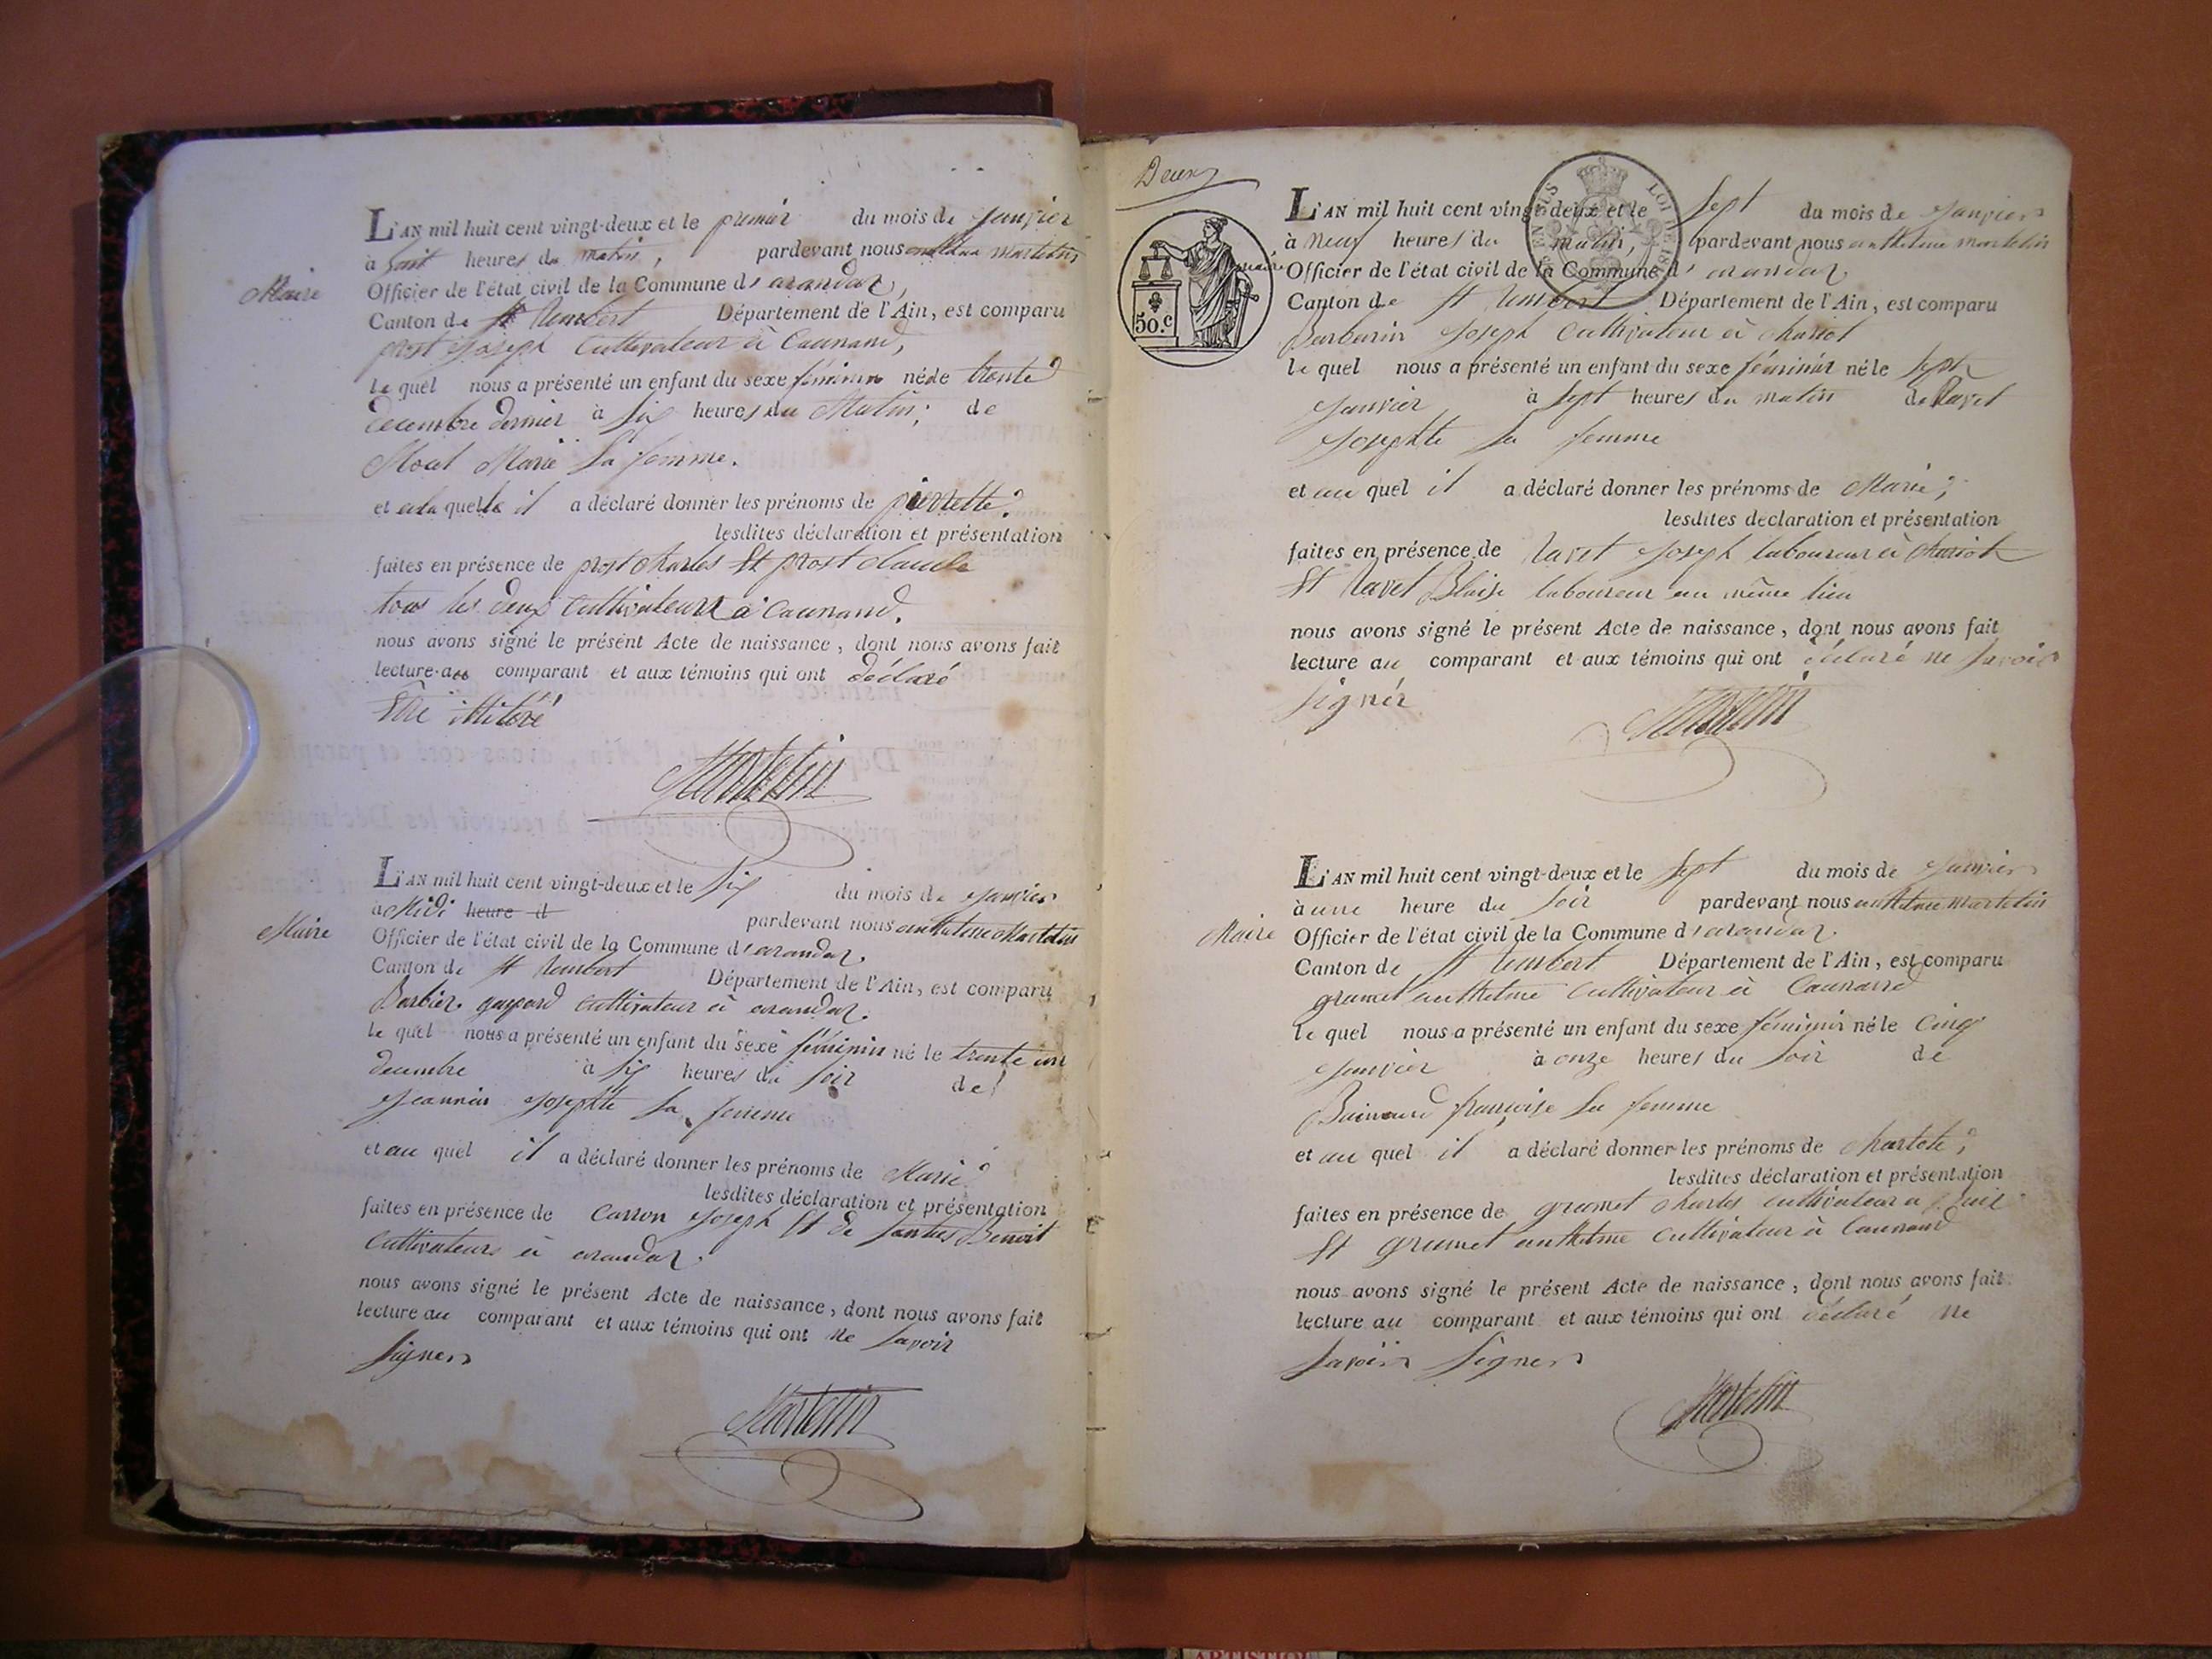 L'AN mil huit cent vingt-deux et le premier du mois de janvier
à huit heures du matin, pardevant nous anthelme martelin
Maire
Officier de l'état civil de la Commune d'arandas,
Canton de St Rembert Département de l'Ain, est comparu
prost joseph Cultivateur à Caunand,
le quel nous a présenté un enfant du sexe féminin né le trente
decembre dernier à six heures du Matin; de
Marie sa femme.
et a la quelle il a déclaré donner les prénoms de pierrette.
lesdites déclaration et présentation
faites en présence de prost charles Et prost claude
tous les deux Cultivateurs à Caunand.
nous avons signé le présent Acte de naissance, dont nous avons fait
lecture au comparant et aux témoins qui ont déclaré
Etre illiteré
Martelin
L'AN mil huit cent vingt-deux et le six du mois de janvier
à Midi heure d pardevant nous anthelme Martelin
Maire
Officier de l'état civil de la Commune d'arandas.
Canton de St Rembert Département de l'Ain, est comparu
Barbier gaspard cultivateur à arandas.
le quel nous a présenté un enfant du sexe féminin né le trente un
decembre à six heures du soir de
Jeannin josephte sa femme
et au quel il a déclaré donner les prénoms de Marie
lesdites déclaration et présentation
faites en présence de Carron joseph Et de Benoit
Cultivateurs à arandas.
nous avons signé le présent Acte de naissance, dont nous avons fait
lecture au comparant et aux témoins qui ont ne savoir
signer
Martelin
Deux
50.c
L'AN mil huit cent vingt-deux et le sept du mois de janvier
à neuf heures du matin, pardevant nous anthelme martelin
maire
Officier de l'état civil de la Commune d'arandas
Canton de St Rembert Département de l'Ain, est comparu
Barbarin joseph Cultivateur à chariot
le quel nous a présenté un enfant du sexe féminin né le sept
janvier à sept heures du matin de Ravet
josephte sa femme
et au quel il a déclaré donner les prénoms de Marie,
lesdites déclaration et présentation
faites en présence de Ravet joseph laboureur à chariot
Et Ravet Blaise laboureur au même lieu
nous avons signé le présent Acte de naissance, dont nous avons fait
lecture au comparant et aux témoins qui ont déclaré ne savoir
signer
Martelin
L'AN mil huit cent vingt-deux et le sept du mois de janvier
à une heure du soir pardevant nous anthelme martelin
Maire
Officier de l'état civil de la Commune d'arandas.
Canton de St Rembert Département de l'Ain, est comparu
grumet anthelme Cultivateur à Caunand
le quel nous a présenté un enfant du sexe féminin né le cinq
janvier à onze heures du soir de
françoise sa femme
et au quel il a déclaré donner les prénoms de charlote,
lesdites déclaration et présentation
faites en présence de grumet charles cultivateur a
Et grumet anthelme Cultivateur à Caunand
nous avons signé le présent Acte de naissance, dont nous avons fait
lecture au comparant et aux témoins qui ont déclaré ne
savoir signer
Martelin